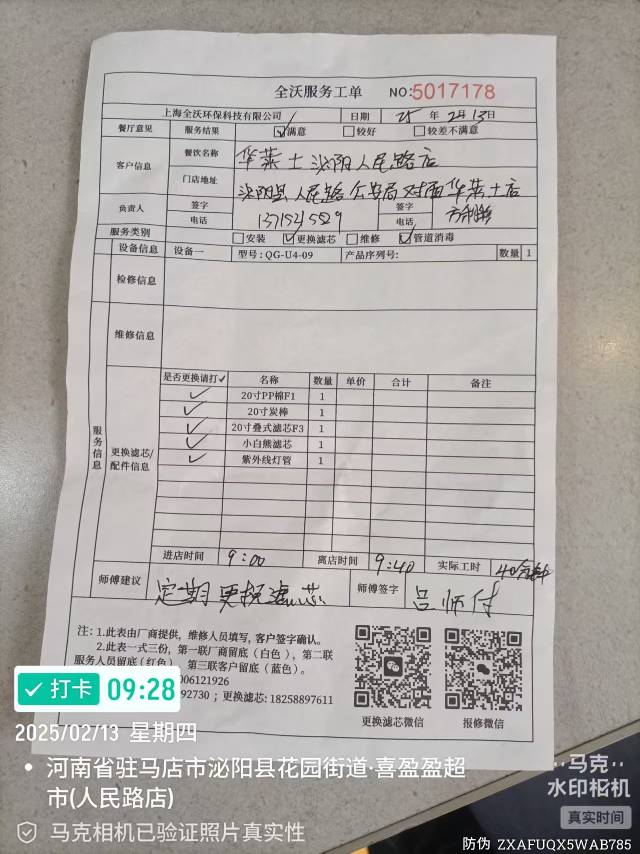 全沃服务工单 NO:5017178
上海全沃环保科技有限公司 日期 25 年 2月13日
餐厅意见 服务结果 ☑满意 □较好 □较差不满意
客户信息 餐饮名称 华莱士泌阳人民路店
门店地址 泌阳县人民路公安局对面华莱士店
负责人 签字 签字
电话 电话
服务类别 □安装 ☑更换滤芯 □维修 ☑管道消毒
设备信息 设备一 型号:QG-U4-09 产品序列号: 数量 1
检修信息
维修信息
服务信息
更换滤芯/配件信息
是否更换请打✓ 名称 数量 单价 合计 备注
✓ 20寸PP棉F1 1
✓ 20寸炭棒 1
✓ 20寸叠式滤芯F3 1
✓ 小白熊滤芯 1
✓ 紫外线灯管 1
进店时间 9:00 离店时间 9:40 实际工时 40分钟
师傅建议 定期更换滤芯 师傅签字 吕师付
注: 1.此表由厂商提供, 维修人员填写, 客户签字确认。
2.此表一式三份, 第一联厂商留底(白色), 第二联
服务人员留底(红色), 第三联客户留底(蓝色)。
006121926
92730 ; 更换滤芯: 18258897611
更换滤芯微信 报修微信
打卡 09:28
2025/02/13 星期四
河南省驻马店市泌阳县花园街道·喜盈盈超
市(人民路店)
马克相机已验证照片真实性
马克
水印相机
真实时间
防伪 ZXAFUQX5WAB785